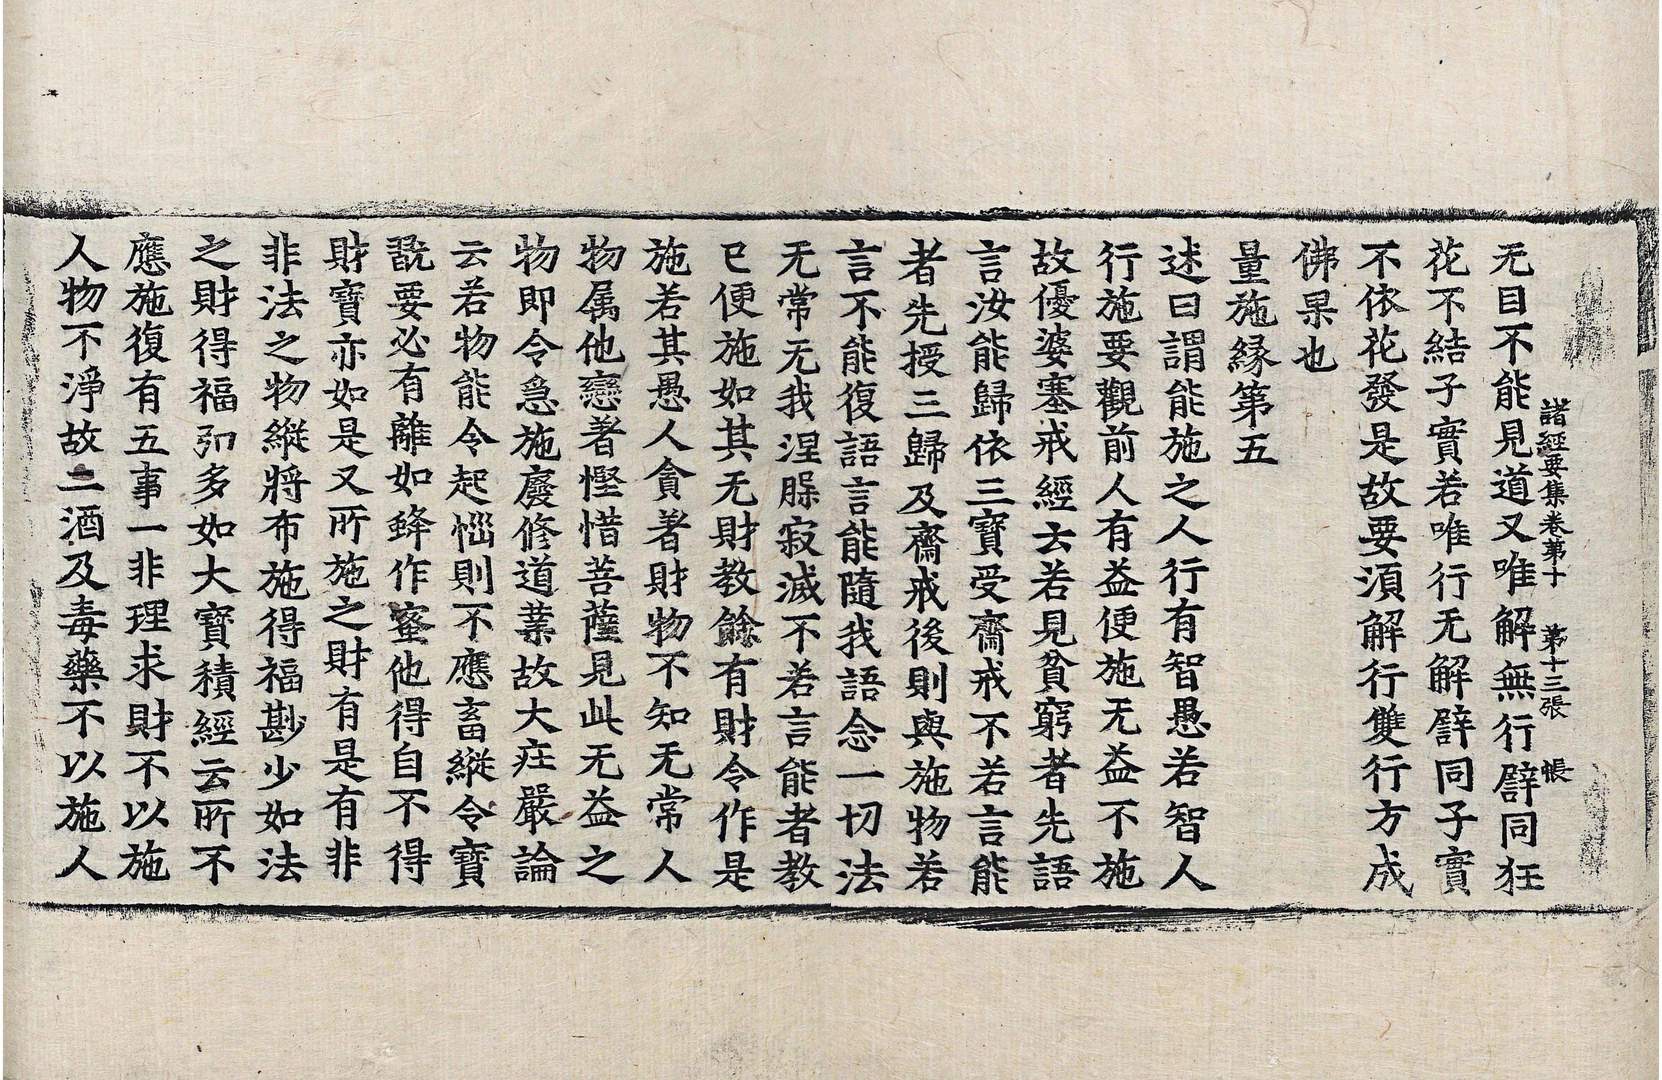 諸經要集卷第十 第十三張 帳
无目不能見道又唯解無行譬同狂
花不結子實若唯行无解譬同子實
不依花發是故要須解行雙行方成
佛果也
量施緣第五
述曰謂能施之人行有智愚若智人
行施要觀前人有益便施无益不施
故優婆塞戒經云若見貧窮者先語
言汝能歸依三寶受齋戒不若言能
者先授三歸及齋戒後則與施物若
言不能復語言能隨我語念一切法
无常无我涅槃寂滅不若言能者教
已便施如其无財教餘有財令作是
施若其愚人貪著財物不知无常人
物属他戀著慳惜菩薩見此无益之
物即令急施廢修道業故大庄嚴論
云若物能令起惱則不應畜縱令寶
翫要必有離如蜂作蜜他得自不得
財寶亦如是又所施之財有是有非
非法之物縱將布施得福尠少如法
之財得福弘多如大寶積經云所不
應施復有五事一非理求財不以施
人物不淨故二酒及毒藥不以施人